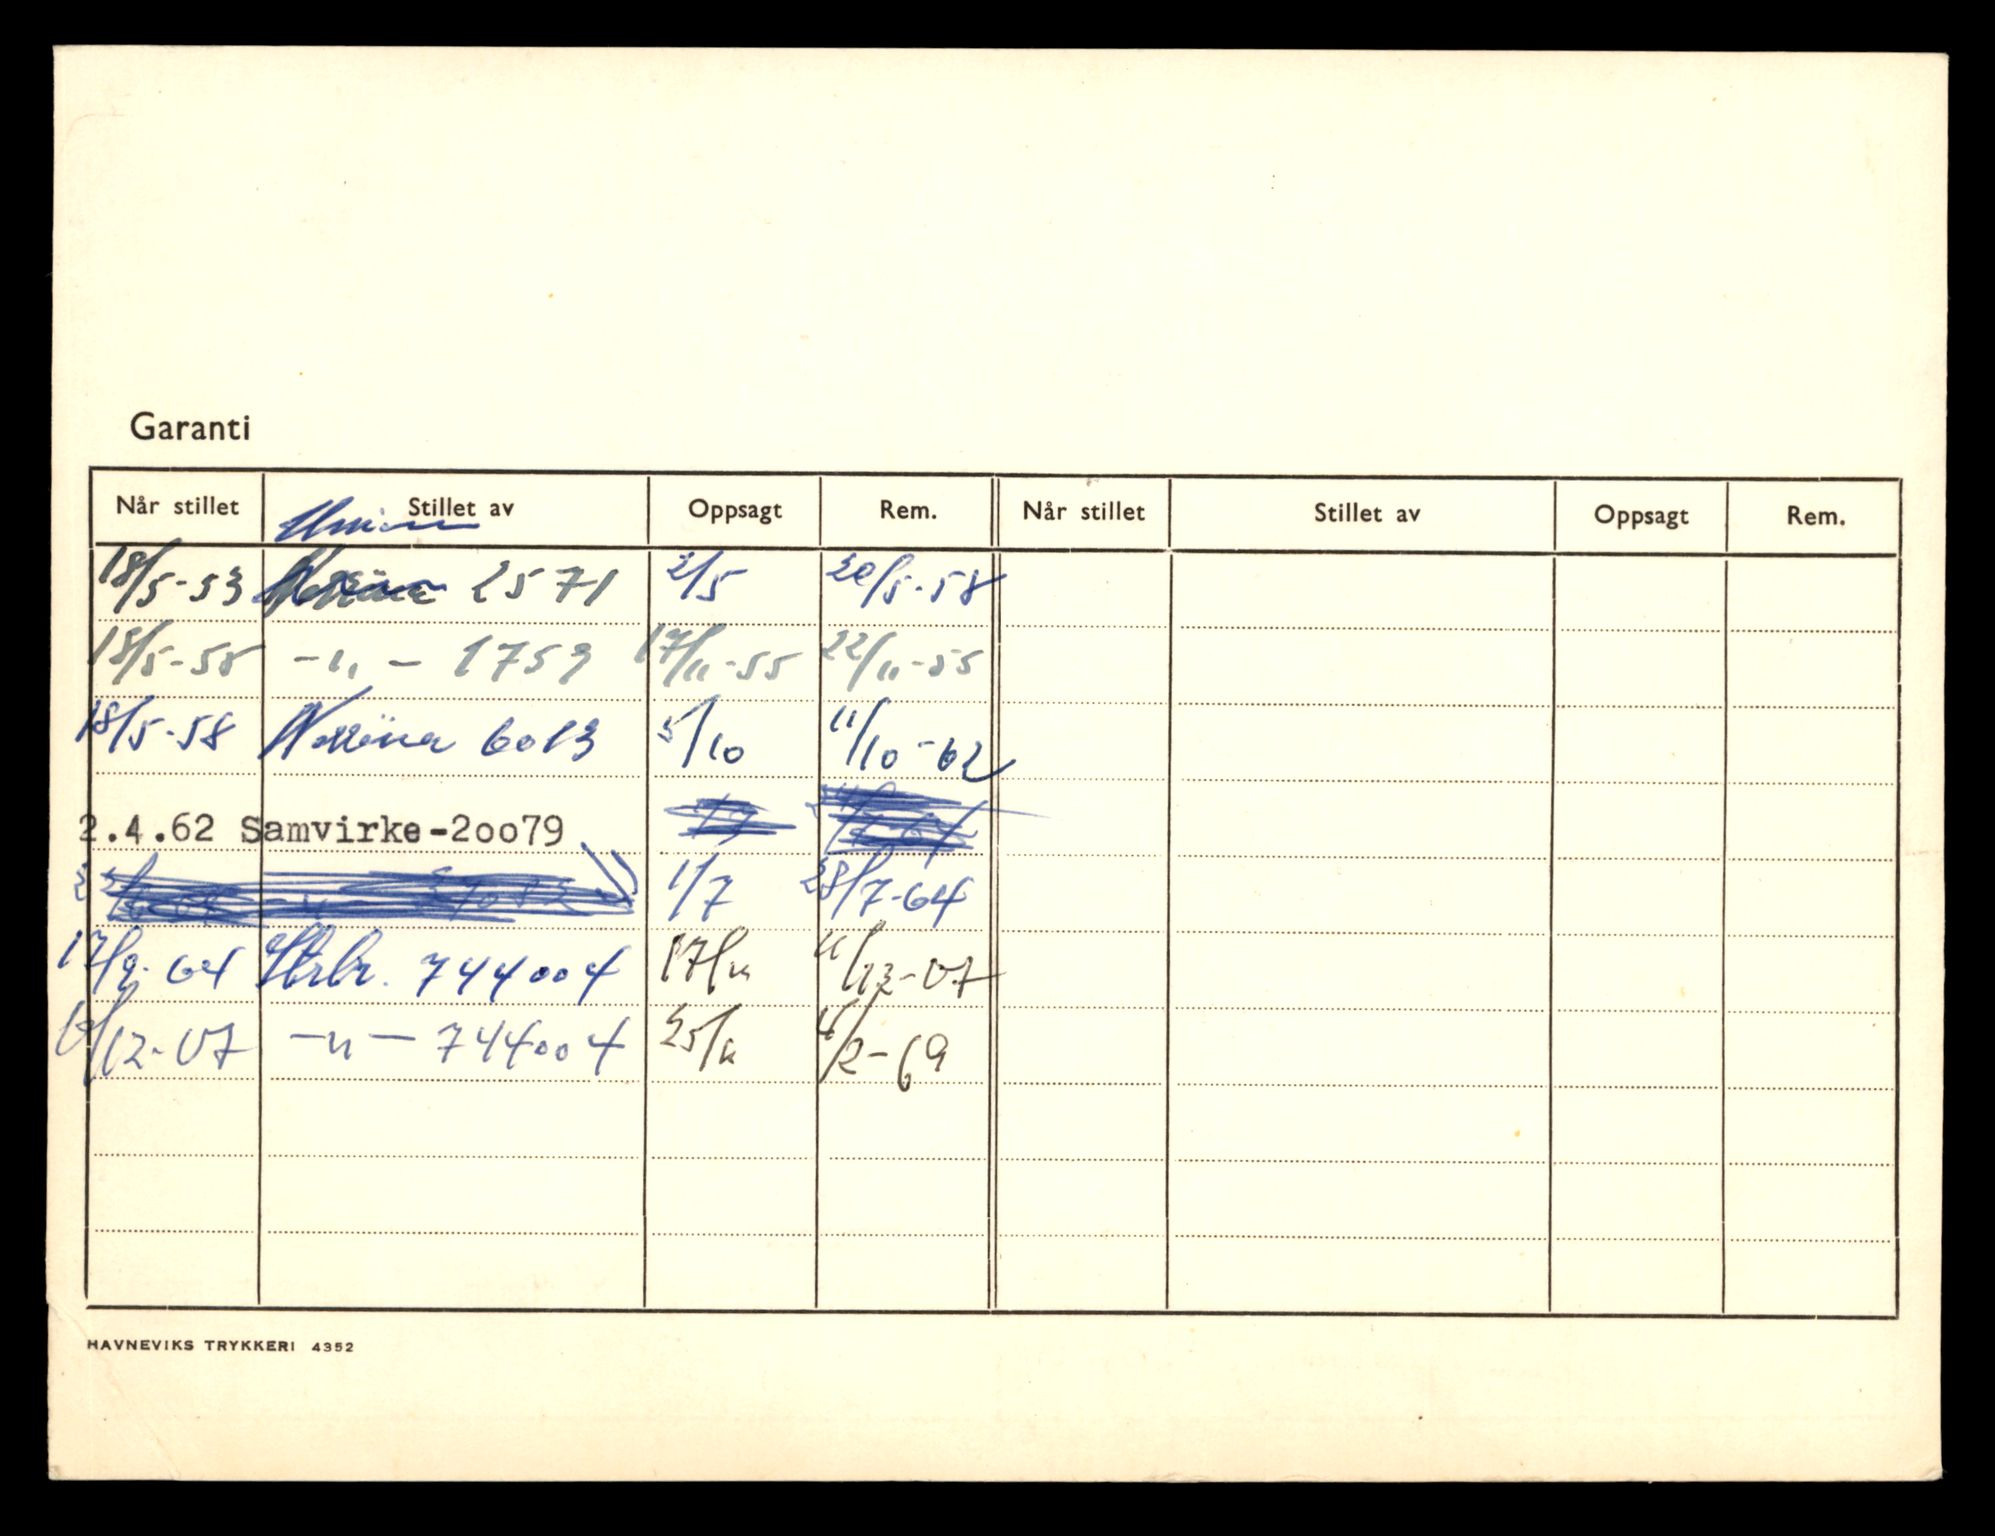 Garanti
Når stillet Stillet av Oppsagt Rem. Når stillet Stillet av Oppsagt Rem.
Union
18/5-53 2571 2/5 20/5-58
18/5-55 -"- 1759 17/11-55 22/11-55
18/5-58 Norröna 6013 5/10 11/10-62
2.4.62 Samvirke-20079
1/7 28/7-64
17/9-64 Strbr. 744004 17/11 11/12-67
10/12-67 -"- 744004 25/11 4/2-69
HAVNEVIKS TRYKKERI 4352